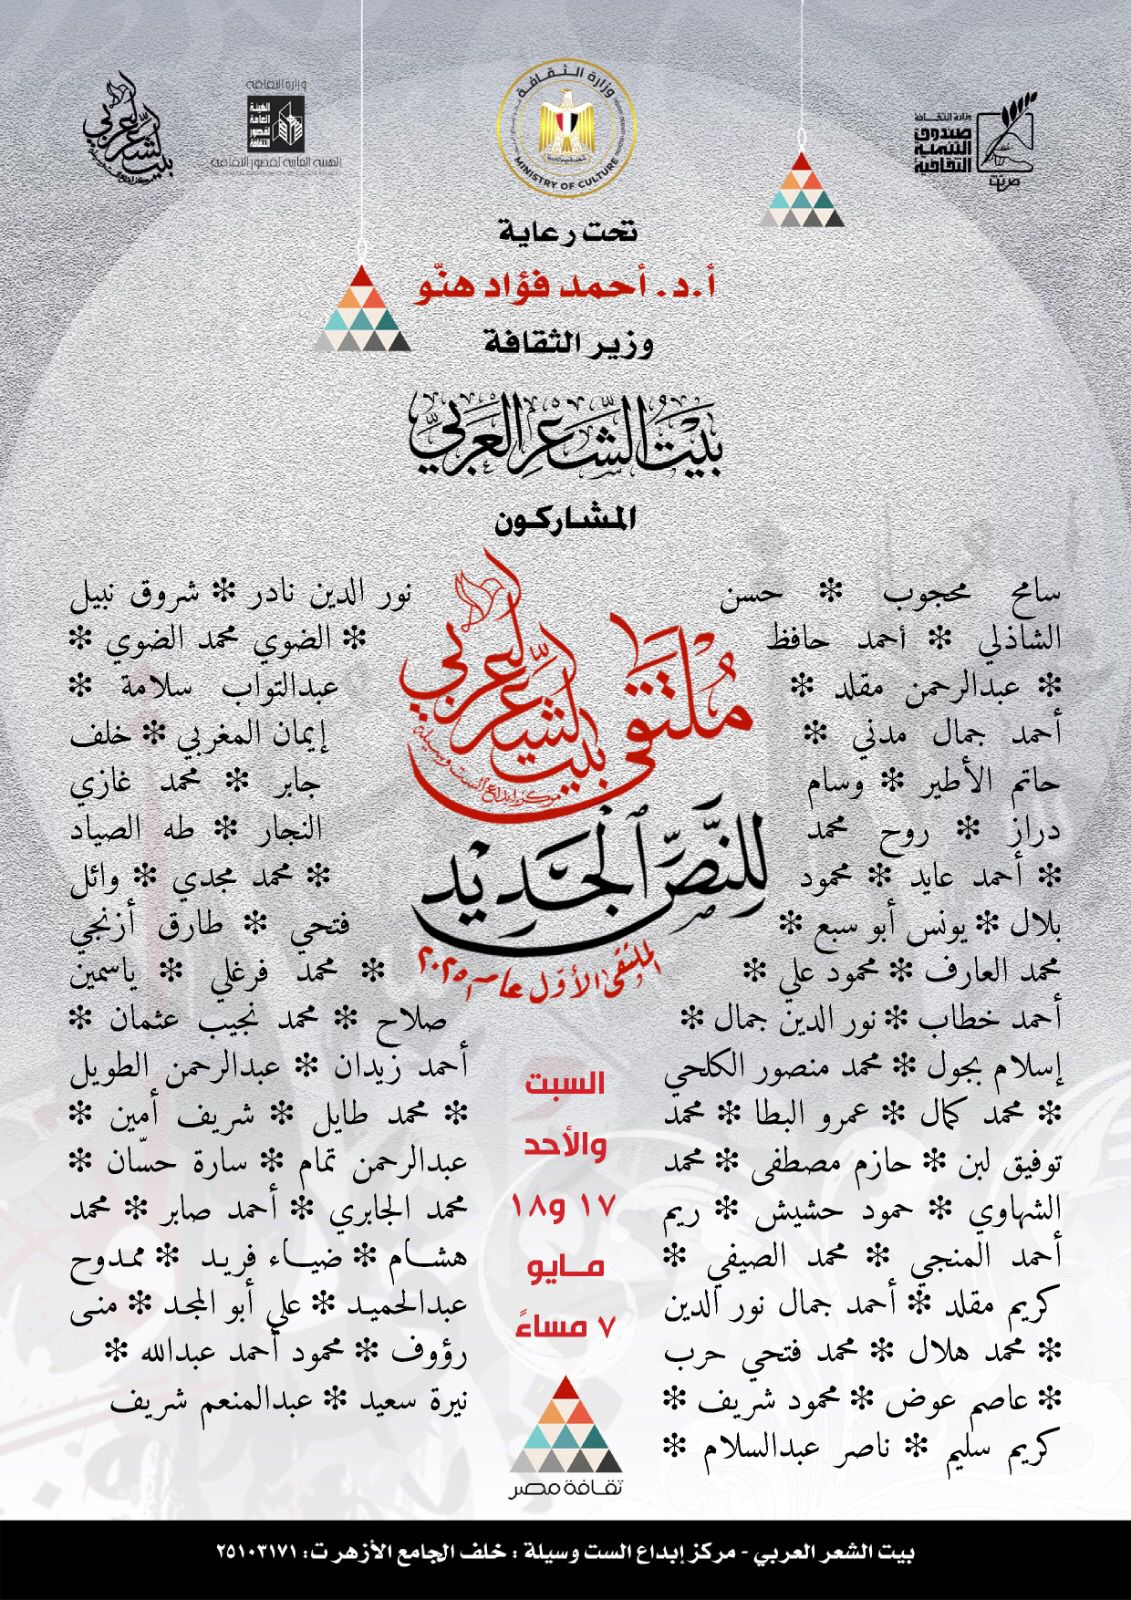 بيت الشعر العربي
وزارة الثقافة
الهيئة
العامة
لقصور
الثقافة
الهيئة العامة لقصور الثقافة
وزارة الثقافة
MINISTRY OF CULTURE
وزارة الثقافة
صندوق
التنمية
الثقافية
تحت رعاية
أ.د. أحمد فؤاد هنّو
وزير الثقافة
بَيْتُ الشِّعْرِ العَرَبيِّ
المشاركون
سامح محجوب ❇ حسن
الشاذلي ❇ أحمد حافظ
❇ عبدالرحمن مقلد ❇
أحمد جمال مدني ❇
حاتم الأطير ❇ وسام
دراز ❇ روح محمد
❇ أحمد عايد ❇ محمود
بلال ❇ يونس أبو سبع ❇
محمد العارف ❇ محمود علي ❇
أحمد خطاب ❇ نور الدين جمال ❇
إسلام بجول ❇ محمد منصور الكلحي
❇ محمد كمال ❇ عمرو البطا ❇ محمد
توفيق لبن ❇ حازم مصطفى ❇ محمد
الشهاوي ❇ حمود حشيش ❇ ريم
أحمد المنجي ❇ محمد الصيفي ❇
كريم مقلد ❇ أحمد جمال نور الدين
❇ محمد هلال ❇ محمد فتحي حرب
❇ عاصم عوض ❇ محمود شريف ❇
كريم سليم ❇ ناصر عبدالسلام ❇
مُلتقى بيت الشعر العربي
مركز إبداع الست وسيلة
للنَّصِّ الجَدِيد
الملتقى الأوّل عام ٢٠٢٥م
السبت
والأحد
١٧ و١٨
مـايو
٧ مساءً
ثقافة مصر
نور الدين نادر ❇ شروق نبيل
❇ الضوي محمد الضوي ❇
عبدالتواب سلامة ❇
إيمان المغربي ❇ خلف
جابر ❇ محمد غازي
النجار ❇ طه الصياد
❇ محمد مجدي ❇ وائل
فتحي ❇ طارق أزنجي
❇ محمد فرغلي ❇ ياسمين
صلاح ❇ محمد نجيب عثمان ❇
أحمد زيدان ❇ عبدالرحمن الطويل
❇ محمد طايل ❇ شريف أمين ❇
عبدالرحمن تمام ❇ سارة حسّان ❇
محمد الجابري ❇ أحمد صابر ❇ محمد
هشـام ❇ ضيـاء فريـد ❇ ممـدوح
عبدالحميـد ❇ علي أبو المجـد ❇ منـى
رؤوف ❇ محمود أحمد عبدالله ❇
نيرة سعيد ❇ عبدالمنعم شريف
بيت الشعر العربي - مركز إبداع الست وسيلة : خلف الجامع الأزهر ت: ٢٥١٠٣١٧١